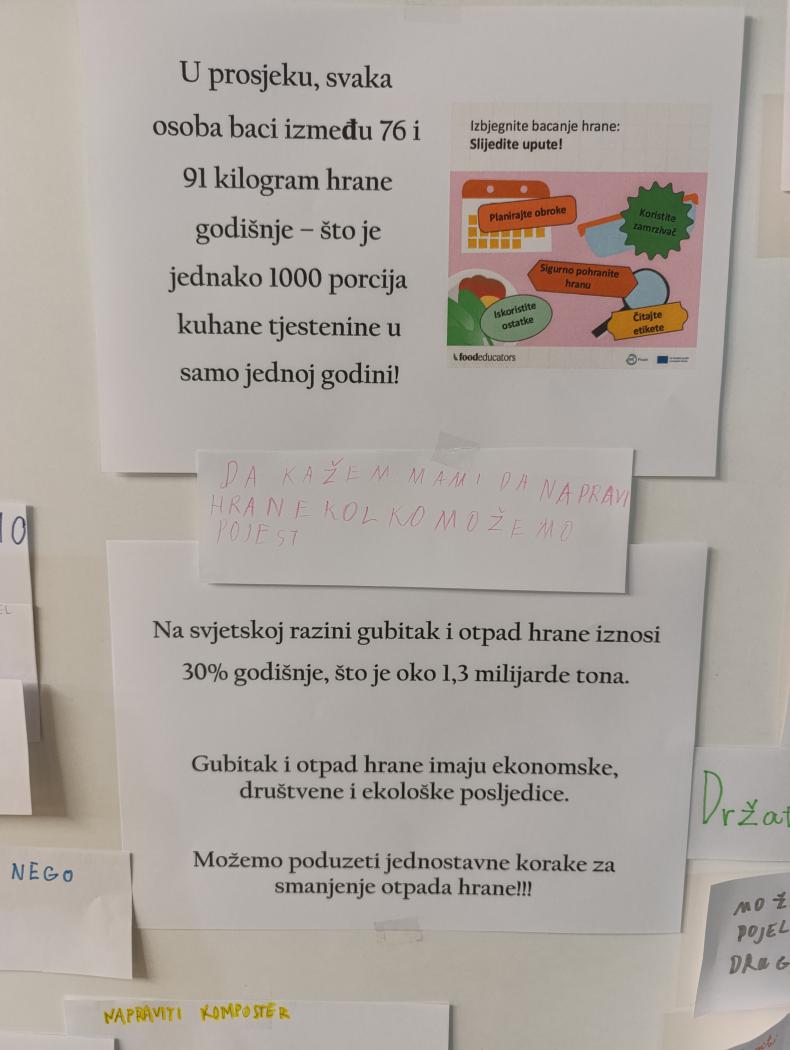 U prosjeku, svaka
osoba baci između 76 i
91 kilogram hrane
godišnje – što je
jednako 1000 porcija
kuhane tjestenine u
samo jednoj godini!
Izbjegnite bacanje hrane:
Slijedite upute!
Planirajte obroke
Koristite
zamrzivač
Sigurno pohranite
hranu
Iskoristite
ostatke
Čitajte
etikete
foodeducators
DA KAŽEM MAMI DA NAPRAVI
HRANE KOLKO MOŽEMO
POJEST
Na svjetskoj razini gubitak i otpad hrane iznosi
30% godišnje, što je oko 1,3 milijarde tona.
Gubitak i otpad hrane imaju ekonomske,
društvene i ekološke posljedice.
Možemo poduzeti jednostavne korake za
smanjenje otpada hrane!!!
Držat
NEGO
MOŽ
POJEL
DRUG
NAPRAVITI KOMPOSTER